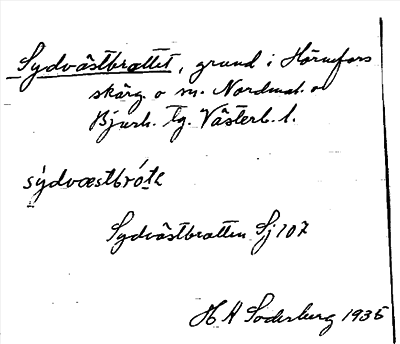 Sydvästbrottet, grund i Hörnefors
skärg. o m. Nordmal. o
Bjurh. tg. Västerb. l.
sydvæstbrótə
Sydvästbrotten Sj 107
H A Söderberg 1935